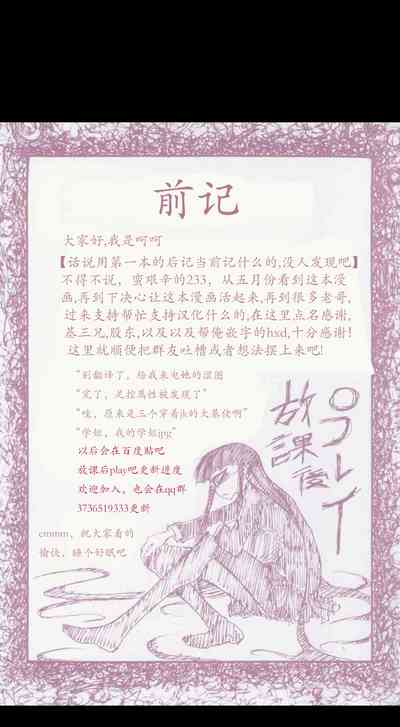 前记
大家好,我是呵呵
【话说用第一本的后记当前记什么的,没人发现吧】
不得不说，蛮艰辛的233，从五月份看到这本漫
画,再到下决心让这本漫画活起来,再到很多老哥,
过来支持帮忙支持汉化什么的,在这里点名感谢,
基三兄,股东,以及以及帮俺嵌字的hxd,十分感谢！
这里就顺便把群友吐槽或者想法摆上来吧!
“别翻译了，给我来电她的涩图
“完了，足控属性被发现了”
“哇，原来是三个穿着jk的大暴徒啊”
“学姐，我的学姐jpg”
以后会在百度贴吧
放课后play吧更新进度
欢迎加入，也会在qq群
3736519333更新
emmm，祝大家看的
愉快，睡个好眠吧
放課後
プレイ